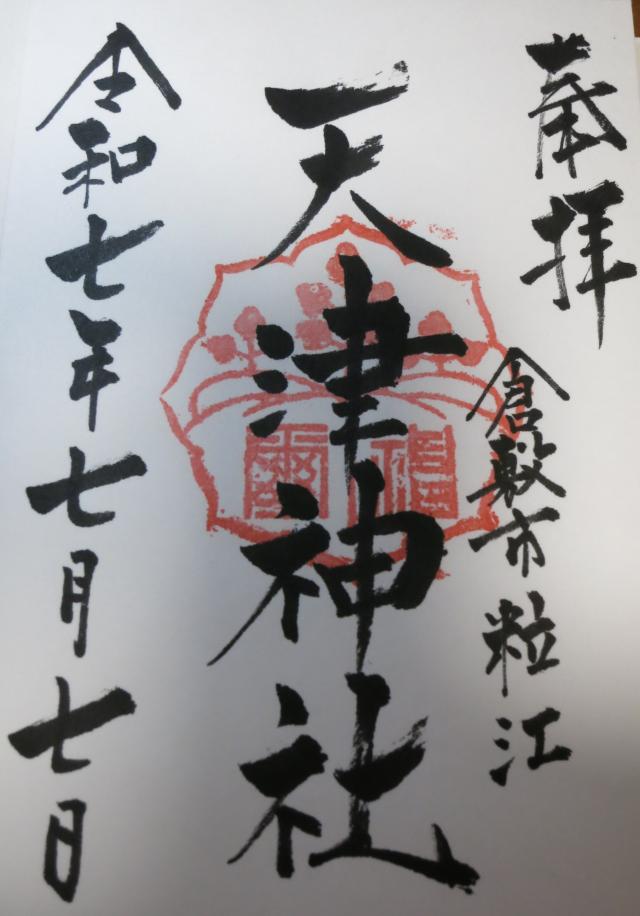 奉拝
倉敷市粒江
天津神社
令和七年七月七日